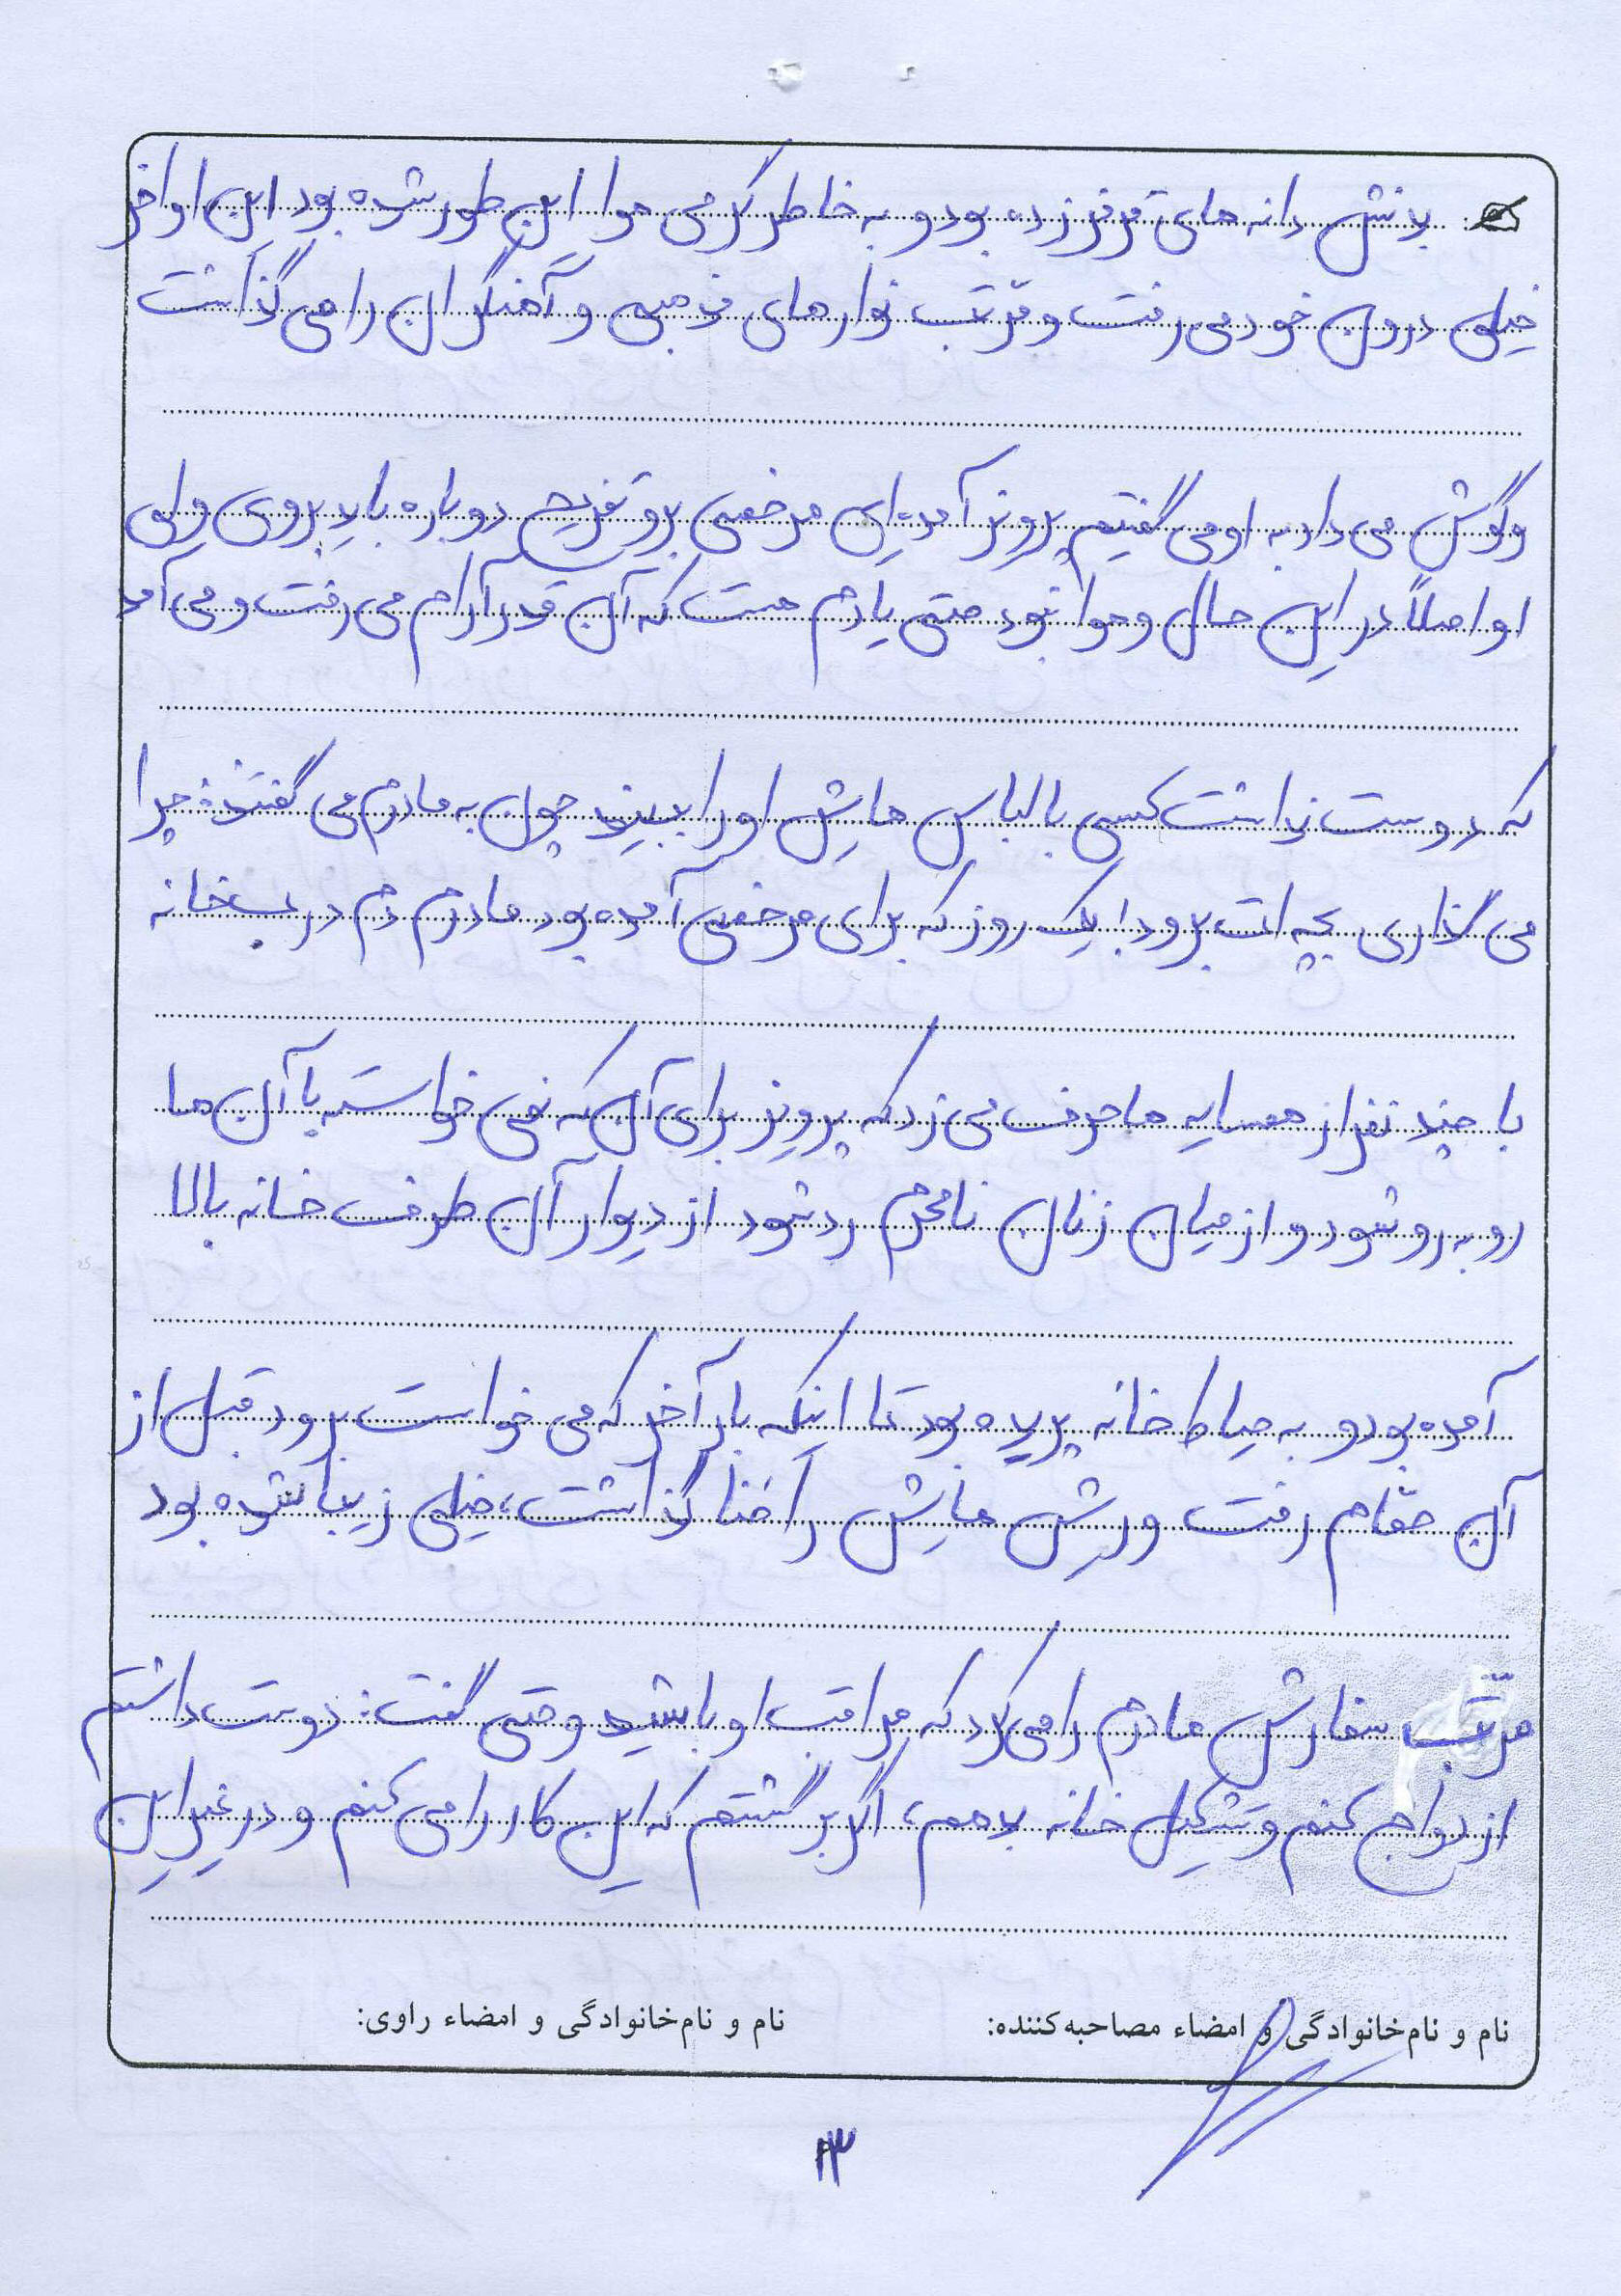 بدنش دانه های قرمز زده بود و به خاطر گرمی هوا این طور شده بود این اواخر
خیلی درون خود می رفت و مرّتب نوارهای مذهبی و آهنگران را می گذاشت
و گوش می داد به او می گفتیم پرویز آمده ای مرخصی برو تفریح دوباره باید بروی ولی
او اصلاً در این حال و هوا نبود حتی یادم هست که آن قدر آرام می رفت و می آمد
که دوست نداشت کسی با لباس هایش او را ببیند چون به مادرم می گفتند: چرا
می گذاری بچه ات برود! یک روز که برای مرخصی آمده بود مادرم دم درب خانه
با چند نفر از همسایه ها حرف می زد که پرویز برای آن که نمی خواست با آن ها
رو به رو شود و از میان زنان نامحرم رد شود از دیوار آن طرف خانه بالا
آمده بود و به حیاط خانه پریده بود تا اینکه بار آخر که می خواست برود قبل از
آن حمّام رفت و ریش هایش را حنا گذاشت، خیلی زیبا شده بود
مرّتب سفارش مادرم را می کرد که مراقب او باشید و حتی گفت: دوست داشتم
ازدواج کنم و تشکیل خانه بدهم، اگر برگشتم که این کار را می کنم و در غیر این
نام و نام‌خانوادگی و امضاء مصاحبه‌کننده: نام و نام‌خانوادگی و امضاء راوی:
۱۳